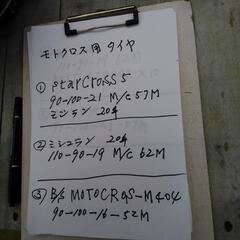 モトクロス用タイヤ
① starcross5
90-100-21 M/c 57M
ミシュラン 20年
② ミシュラン 20年
110-90-19 M/c 62M
③ B/S MOTOCROS-M404
90-100-16-52M